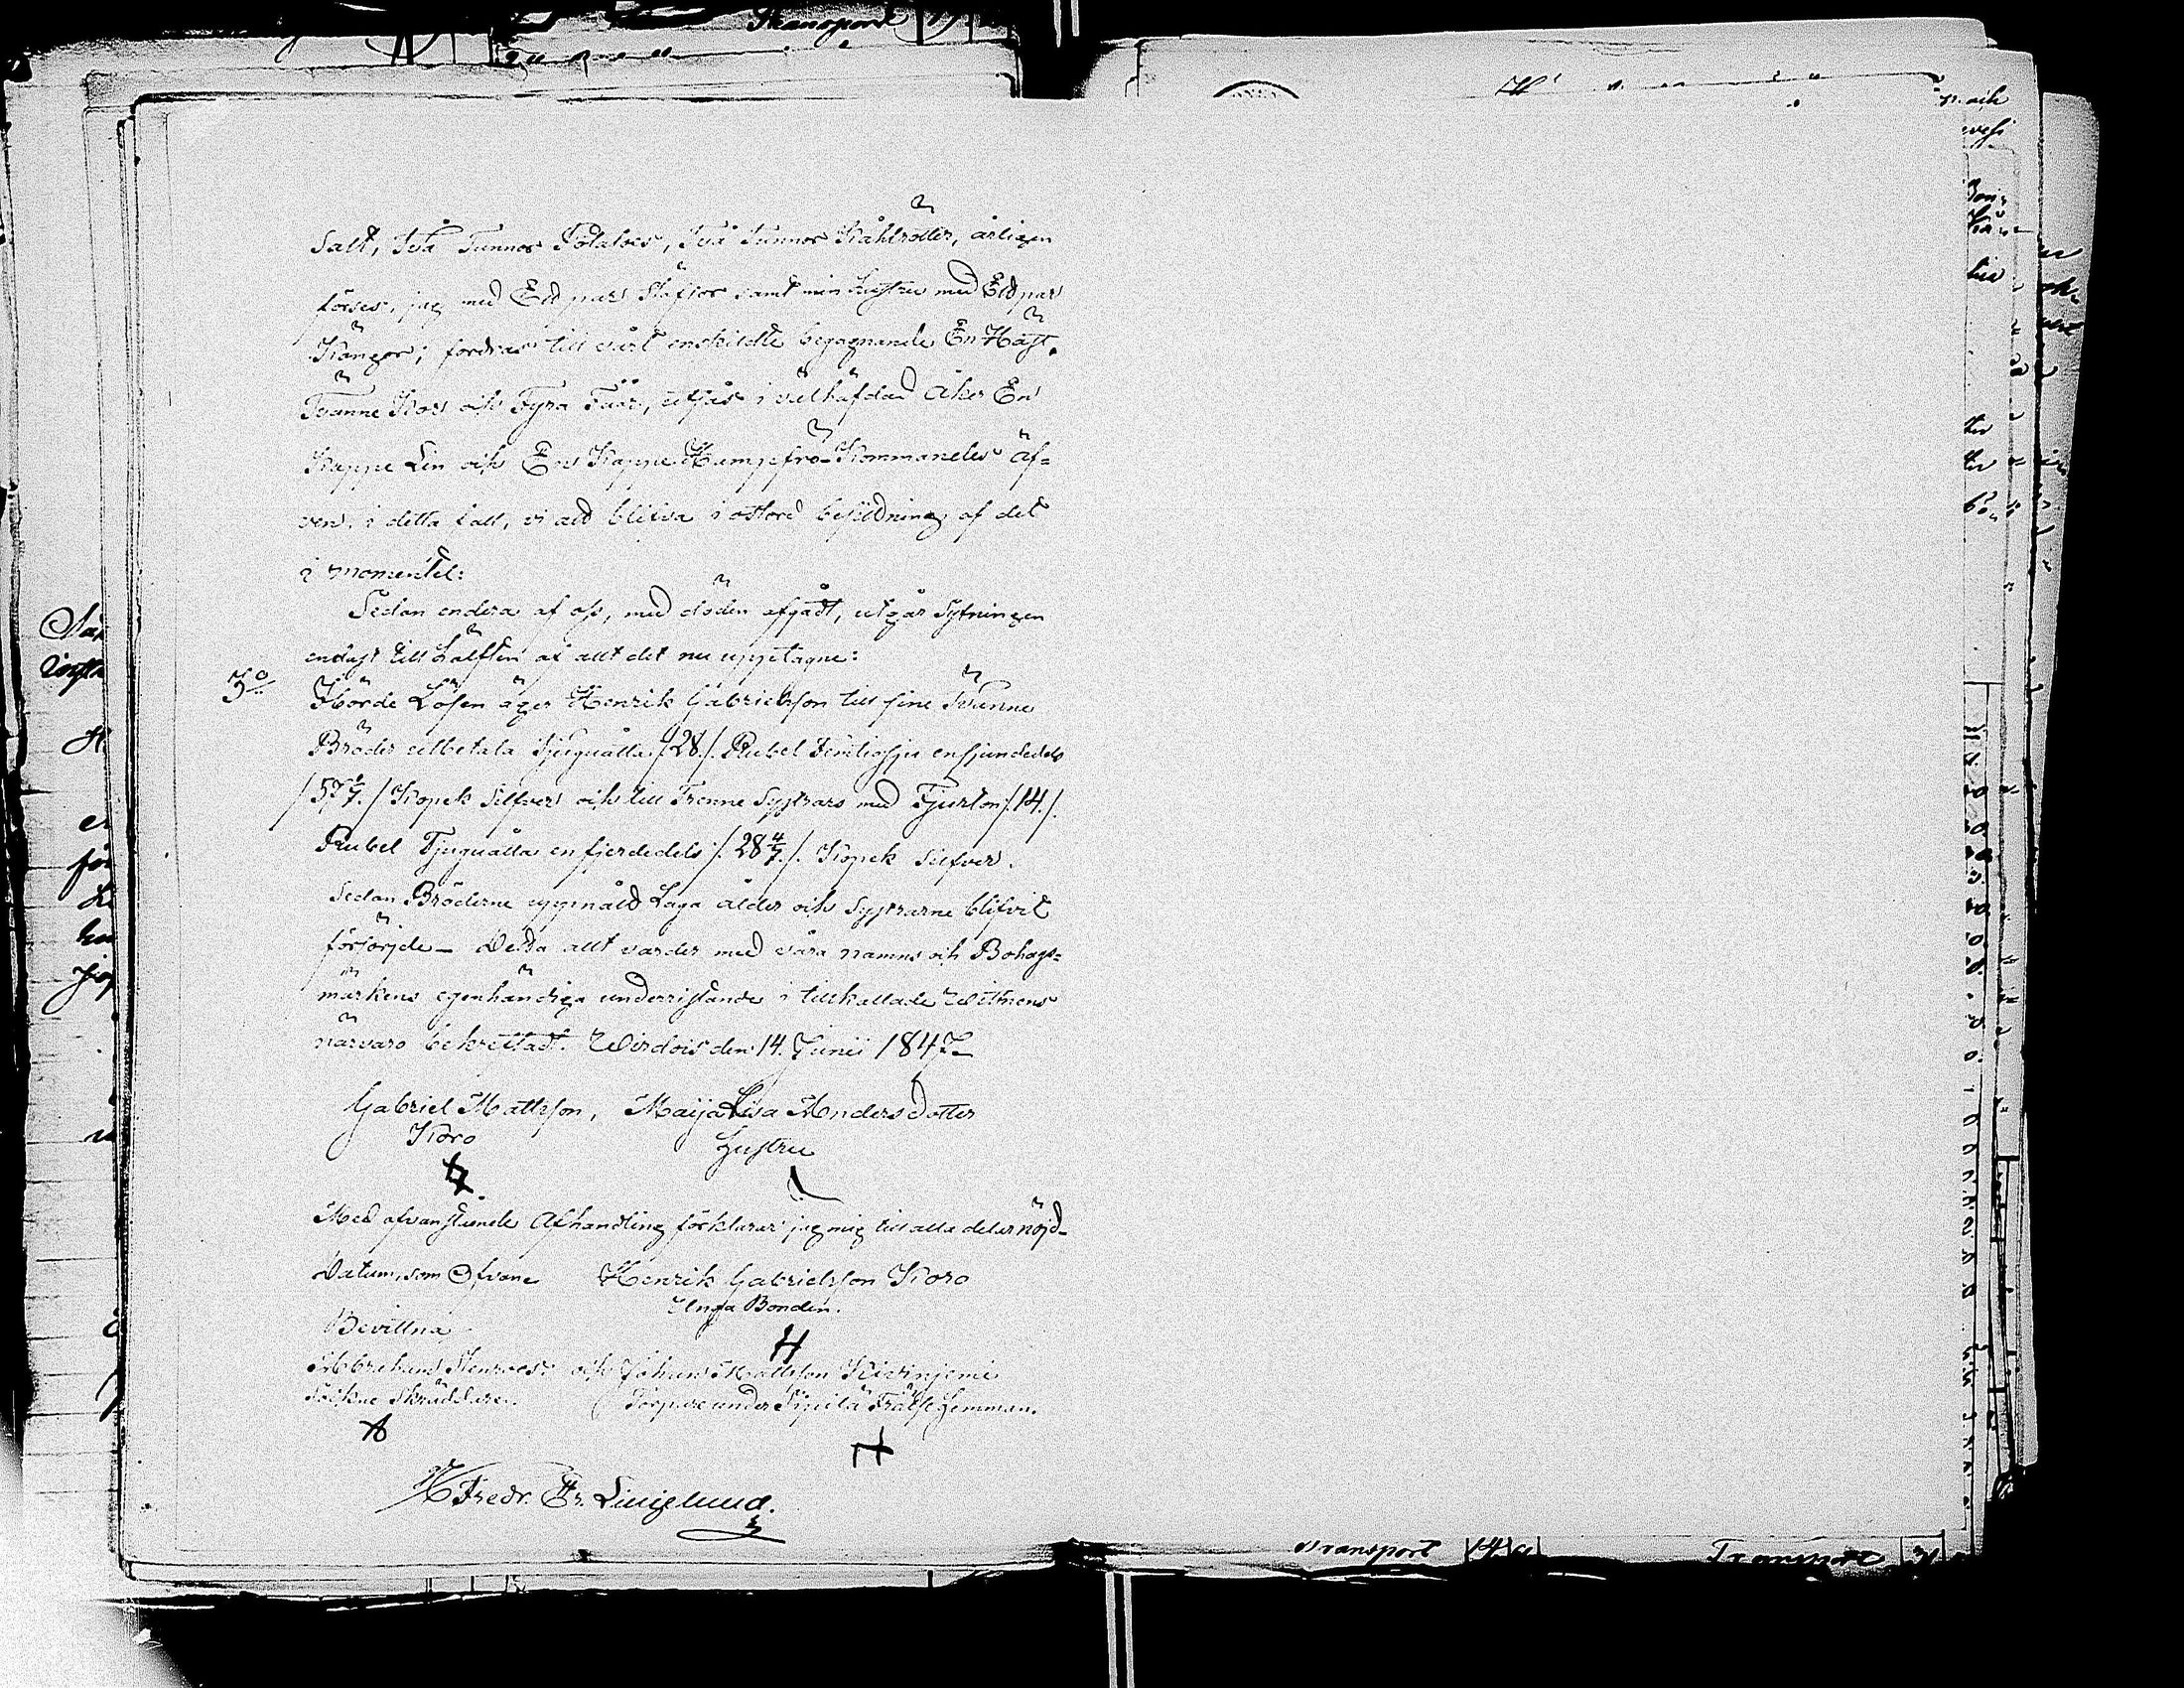 Salt, Två Tunnor Potatoes, Två Tunnor Kåhlrötter, årligen
förses, jag med Ett par Stöflor samt min hustru med Ett par
Kängor; fordras till vårt enskildte begagnande En Häst.
Tvänne Kor och Fyra Får, utsås i välhäfdad åker En
Kappe Lin och En Kappe Hampfrö - Kommandes äf=
ven i detta fall, vi att blifva i oförd besittning af det
i momentet:
Sedan endera af oss, med döden afgått, utgår Sytningen
endast till hälften af allt det nu upptagne:
5o
Hörde Lösen äger Henrik Gabrielsson till sine Tvänne
Bröder utbetala Tjuguåtta /:28:/ Rubel Femtiosju ensjundedels
/57 1/7./ Kopek Silfver och till Trenne Systrar med Fjorton /:14./.
Rubel Tjuguåtta en fjerdedels /. 28 4/7./. Kopek Silfver.
Sedan Bröderne uppnått Laga ålder och Systrarne blifvit
försörjde - Detta allt varder med våra namns och Bohags=
märkens egenhändiga underristande i tillkallade Wittnens
närvaro bekräftadt. Wirdois den 14. Junii 1847
Gabriel Mattsson, Maija Lisa Anders Dotter
Koro Hustru
Med ofvanstående Afhandling förklarar jag mig till alla delar nöjd-
Datum, som Ofvan Henrik Gabrielsson Koro
Unga Bonden.
Bevittna
Abraham Stenroos och Johan Mattsson Kivinjemi
Sockne Skräddare. Torpare under Sipilä Frälse Hemman.
Fredr. Fr. Ljungelund.
Transport
Transport
Transport